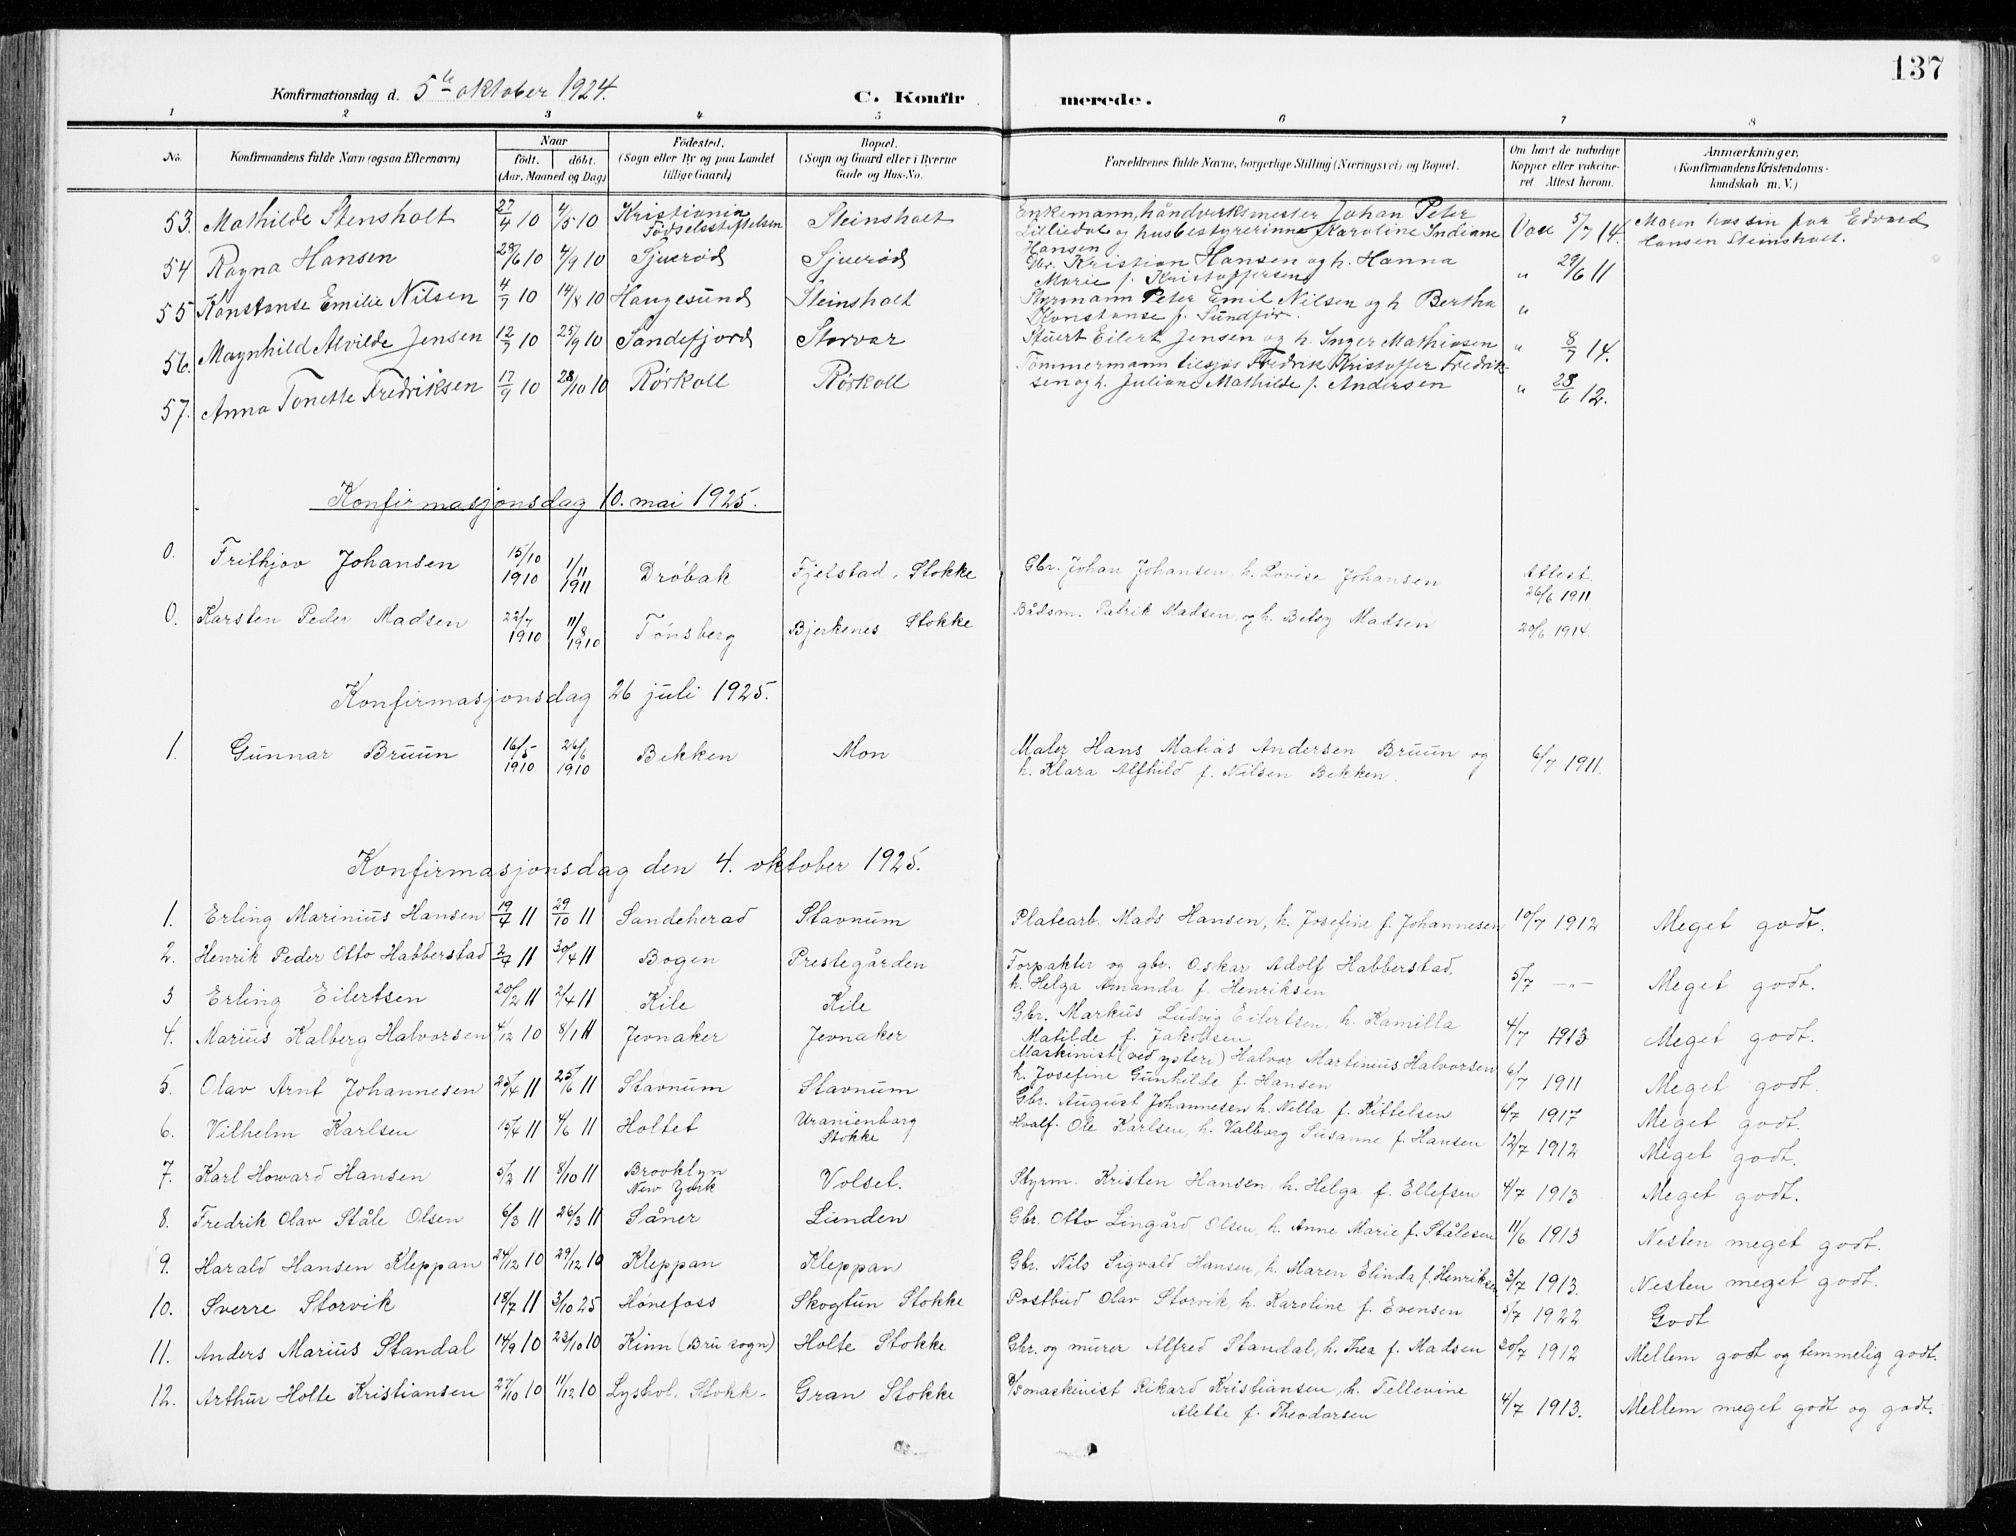 137
Konfirmationsdag d. 5te oktober 1924. C. Konfirmerede.
1 2 3 4 5 6 7 8
No. Konfirmandens fulde Navn (ogsaa Efternavn) Naar født. døbt. (Aar, Maaned og Dag) Fødested. (Sogn eller By og paa Landet tillige Gaard) Bopæl. (Sogn og Gaard eller i Byerne Gade og Hus-No. Forældrenes fulde Navne, borgerlige Stilling (Næringsvei) og Bopæl. Om havt de naturlige Kopper eller vakcineret Attest herom. Anmærkninger. (Konfirmandens Kristendomskundskab m. V.)
53. Mathilde Stensholt 27/4 10 4/5 10 Kristiania Fødselsstiftelsen Steinsholt Enkemann, håndverksmester Johan Peter Lilliedal og husbestyrerinne Karoline Indiane Hansen Vac 5/7 14. Maren hos sin far Edvard Hansen Steinsholt.
54 Ragna Hansen 28/6 10 4/9 10 Sjuerød Sjuerød Gbr. Kristian Hansen og h. Hanna Marie f. Kristoffersen " 29/6 11
55 Konstanse Emilie Nilsen 4/7 10 14/8 10 Haugesund Steinsholt Styrmann Peter Emil Nilsen og h Bertha Konstanse f. Sundfør. "
56. Magnhild Alvilde Jensen 12/7 10 25/9 10 Sandefjord Storvar Stuert Eilert Jensen og h. Inger Mathiasen " 8/7 14.
57. Anna Tonette Fredriksen 17/9 10 23/10 10 Rørkoll Rørkoll Tømmermann tilsjøs Fredrik Kristoffer Fredriksen og h. Juliane Mathilde f. Andersen " 28/6 12.
Konfirmasjonsdag 10. mai 1925.
0. Frithjov Johansen 15/10 1910 1/11 1911 Drøbak Fjelstad, Stokke Gbr. Johan Johansen, h. Lovise Johansen Attest. 26/6 1911
0. Karsten Peder Madsen 22/7 1910 11/8 1910 Tønsberg Bjerkenes Stokke Bådsm. Patrik Madsen, og h. Betsy Madsen 20/6 1914.
Konfirmasjonsdag 26 juli 1925.
1. Gunnar Bruun 16/5 1910 26/6 1910 Bekken Mon Maler Hans Matias Andersen Bruun og h. Klara Alfhild f. Nilsen Bekken. 6/7 1911.
Konfirmasjonsdag den 4. oktober 1925.
1. Erling Marinius Hansen 19/7 11 29/10 11 Sandeherad Stavnum Platearb. Mads Hansen, h. Josefine f. Johannesen 10/7 1912 Meget godt.
2. Henrik Peder Otto Habberstad 2/4 11 30/4 11 Bogen Prestegården Forpakter og gbr. Oskar Adolf Habberstad, h. Helga Amanda f. Henriksen 5/7 —"— Meget godt.
3 Erling Eilertsen 20/2 11 2/4 11 Kile Kile Gbr. Markus Ludvig Eilertsen, h. Kamilla Matilde f. Jakobsen 4/7 1913 Meget godt.
4. Marius Kalberg Halvorsen 4/12 10 8/1 11 Jevnaker Jevnaker Maskinist (ved ysteri) Halvor Martinius Halvorsen h. Josefine Gunhilde f. Hansen 6/7 1911 Meget godt.
5. Olav Arnt Johannesen 25/4 11 25/6 11 Stavnum Stavnum Gbr. August Johannesen h. Nella f. Kittelsen 4/7 1917 Meget godt.
6. Vilhelm Karlsen 15/4 11 4/6 11 Holtet Uranienborg Stokke Hvalf. Ole Karlsen, h. Valborg Susanne f. Hansen 12/7 1912 Meget godt.
7. Karl Howard Hansen 5/2 11 8/10 11 Brooklyn New York Volset. Styrm. Kristen Hansen, h. Helga f. Ellefsen 4/7 1913 Meget godt.
8. Fredrik Olav Ståle Olsen 6/3 11 26/3 11 Såner Lunden Gbr. Otto Lingård Olsen, h. Anne Marie f. Stålesen 11/6 1913 Nesten meget godt.
9. Harald Hansen Kleppan 24/12 10 29/12 10 Kleppan Kleppan Gbr. Nils Sigvald Hansen, h. Maren Elinda f. Henriksen 3/7 1913. Nesten meget godt.
10. Sverre Storvik 18/7 11 3/10 25 Hønefoss Skogtun Stokke Postbud Olav Storvik, h. Karoline f. Evensen 5/7 1922 Godt
11. Anders Marius Standal 14/9 10 23/10 10 Kinn (Bru sogn) Holte Stokke Gbr. og murer Alfred Standal, h. Thea f. Madsen 20/7 1912 Mellem godt og temmelig godt.
12. Arthur Holte Kristiansen 27/10 10 11/12 10 Lyshol, Stokk- Gran Stokke maskinist Rikard Kristiansen, h. Tellevine Alette f. Theodorsen 4/7 1913. Mellem meget godt og godt.